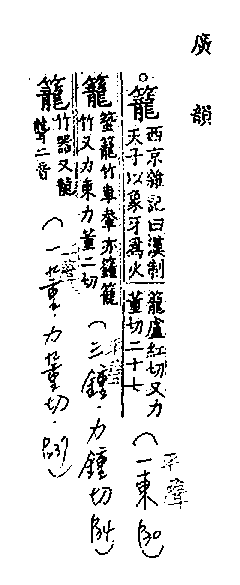 廣韻
○籠 西京雜記曰漢制
天子以象牙爲火
籠盧紅切又力
董切二十七
(一東 P30)
平聲
籠 籃籠竹車軬亦籦籠
竹又力東力董二切
(三鍾·力鍾切 P34)
平聲
籠 竹器又龍
聾二音
(一董·力董切·P237)
上聲